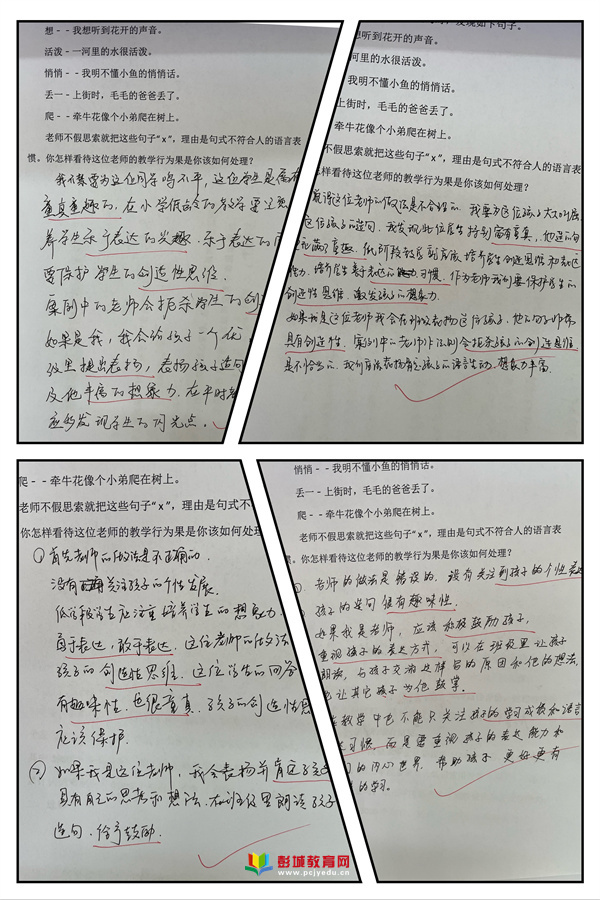 想--我想听到花开的声音。
活泼-一河里的水很活泼。
悄悄--我明不懂小鱼的悄悄话。
丢一-上街时，毛毛的爸爸丢了。
爬--牵牛花像个小弟爬在树上。
老师不假思索就把这些句子“x”，理由是句式不符合人的语言表
惯。你怎样看待这位老师的教学行为果是你该如何处理？
童真童趣的，在小学低龄的教学要注意
养学生乐于表达的兴趣，乐于表达的
要保护学生的创造性思维。
案例中的老师会扼杀学生的创
如果是我，我会给孩子一个
级里提出表扬，表扬孩子造句
及他丰富的想象力，在平时
发现学生的闪光点。
发现如下句子。
想听到花开的声音。
河里的水很活泼。
我明不懂小鱼的悄悄话。
上街时，毛毛的爸爸丢了。
爬--牵牛花像个小弟爬在树上。
师不假思索就把这些句子“x”，理由是句式不符合人的语言表
怎样看待这位老师的教学行为果是你该如何处理？
觉得这位老师的做法是不合理的。我要为这位孩子
这位孩子的造句。我发现此位学生特别富有童真，他造的句
充满了童趣。低阶段
能力，培养学生乐于表达的习惯。作为老师我们要保护学生的
创造性思维，激发孩子的想象力。
如果我是这位老师我会在班级表扬这位孩子，他的句子
具有创造性。案例中的老师作法则会扼杀孩子的创造思维
是不恰当的。我们应该表扬肯定孩子的语言生动，想象力丰富。
爬--牵牛花像个小弟爬在树上。
老师不假思索就把这些句子“x”，理由是句式不符
你怎样看待这位老师的教学行为果是你该如何处理
①首先老师的做法是不正确的。
没有关注孩子的个性发展。
低年段学生应注重培养学生的想象力，
自于表达，敢于表达。这位老师的做法
孩子的创造性思维。这位学生的回答
有趣味性，也很童真，孩子的创造性思
应该保护。
②如果我是这位老师，我会表扬并肯定孩子
具有自己的思考和想法，在班级里朗读孩子
造句，给予鼓励。
悄悄--我明不懂小鱼的悄悄话。
丢一-上街时，毛毛的爸爸丢了。
爬--牵牛花像个小弟爬在树上。
师不假思索就把这些句子“x”，理由是句式不符合人的语言表
。你怎样看待这位老师的教学行为果是你该如何处理？
老师的做法是错误的，没有关注到孩子的个性
孩子的造句很有趣味性。
如果我是老师，应该积极鼓励孩子，
重视孩子的表达方式，可以在班级里让孩子
朗读，与孩子交流这样写的原因和他的想法，
也让其它孩子为他鼓掌。
教学中也不能只关注孩子的学习成绩和语言
习惯，而是要重视孩子的表达能力和
的内心世界，帮助孩子更好更有
的学习。
彭城教育网
www.pcjyedu.cn